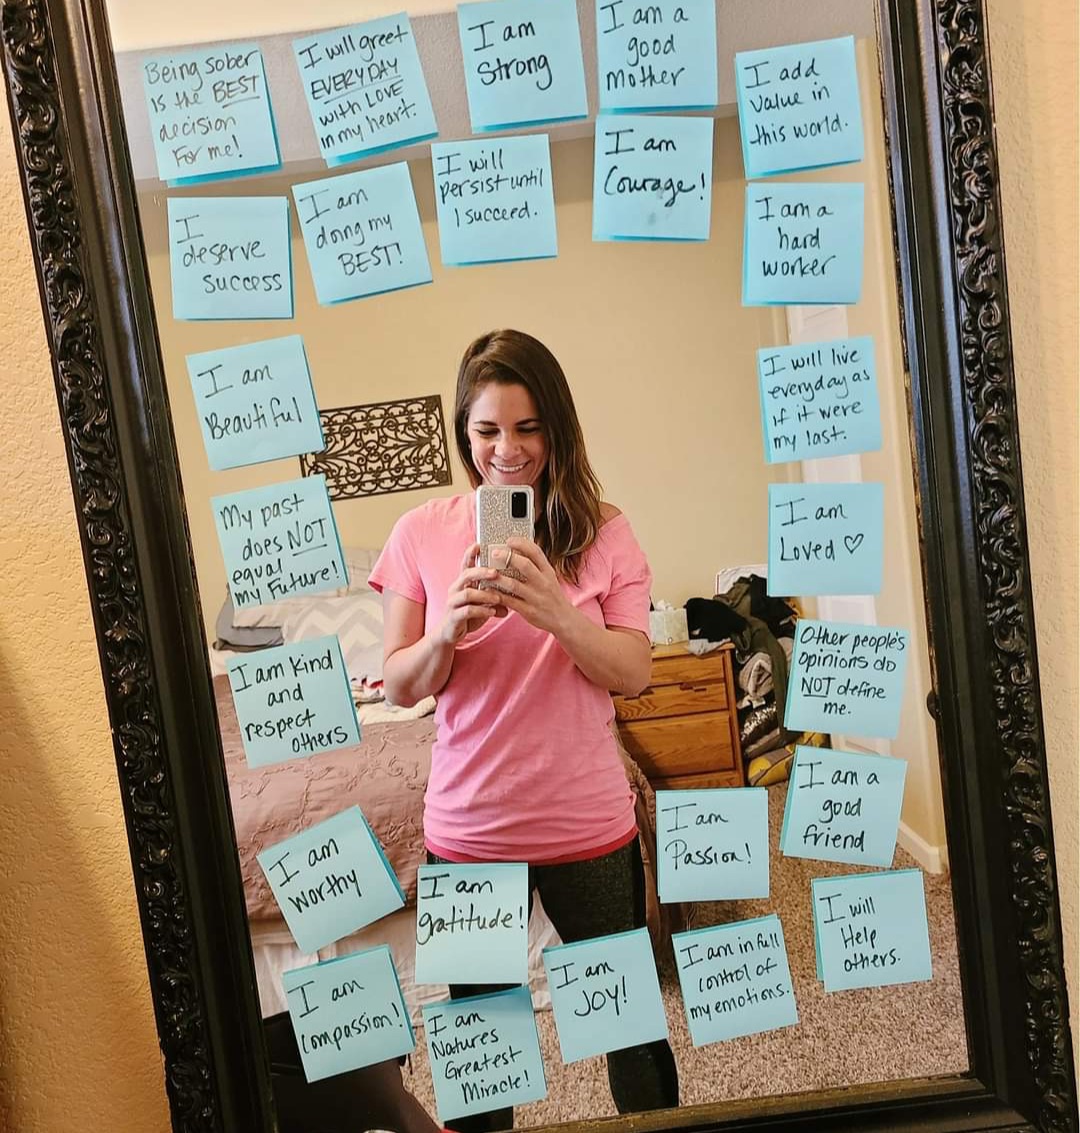 Being sober
is the BEST
decision
For me!
I will greet
EVERYDAY
with LOVE
in my heart.
I am
Strong
I am a
good
mother
I add
value in
this world.
I
deserve
success
I am
doing my
BEST!
I will
persist until
I succeed.
I am
Courage!
I am a
hard
worker
I am
Beautiful
I will live
everyday as
if it were
my last.
My past
does NOT
equal
my Future!
I am
Loved ♡
I am kind
and
respect
others
Other people's
opinions do
NOT define
me.
I am
worthy
I am
gratitude!
I am
Passion!
I am a
good
friend
I am
compassion!
I am
Natures
Greatest
Miracle!
I am
JOY!
I am in full
control of
my emotions.
I will
Help
others.